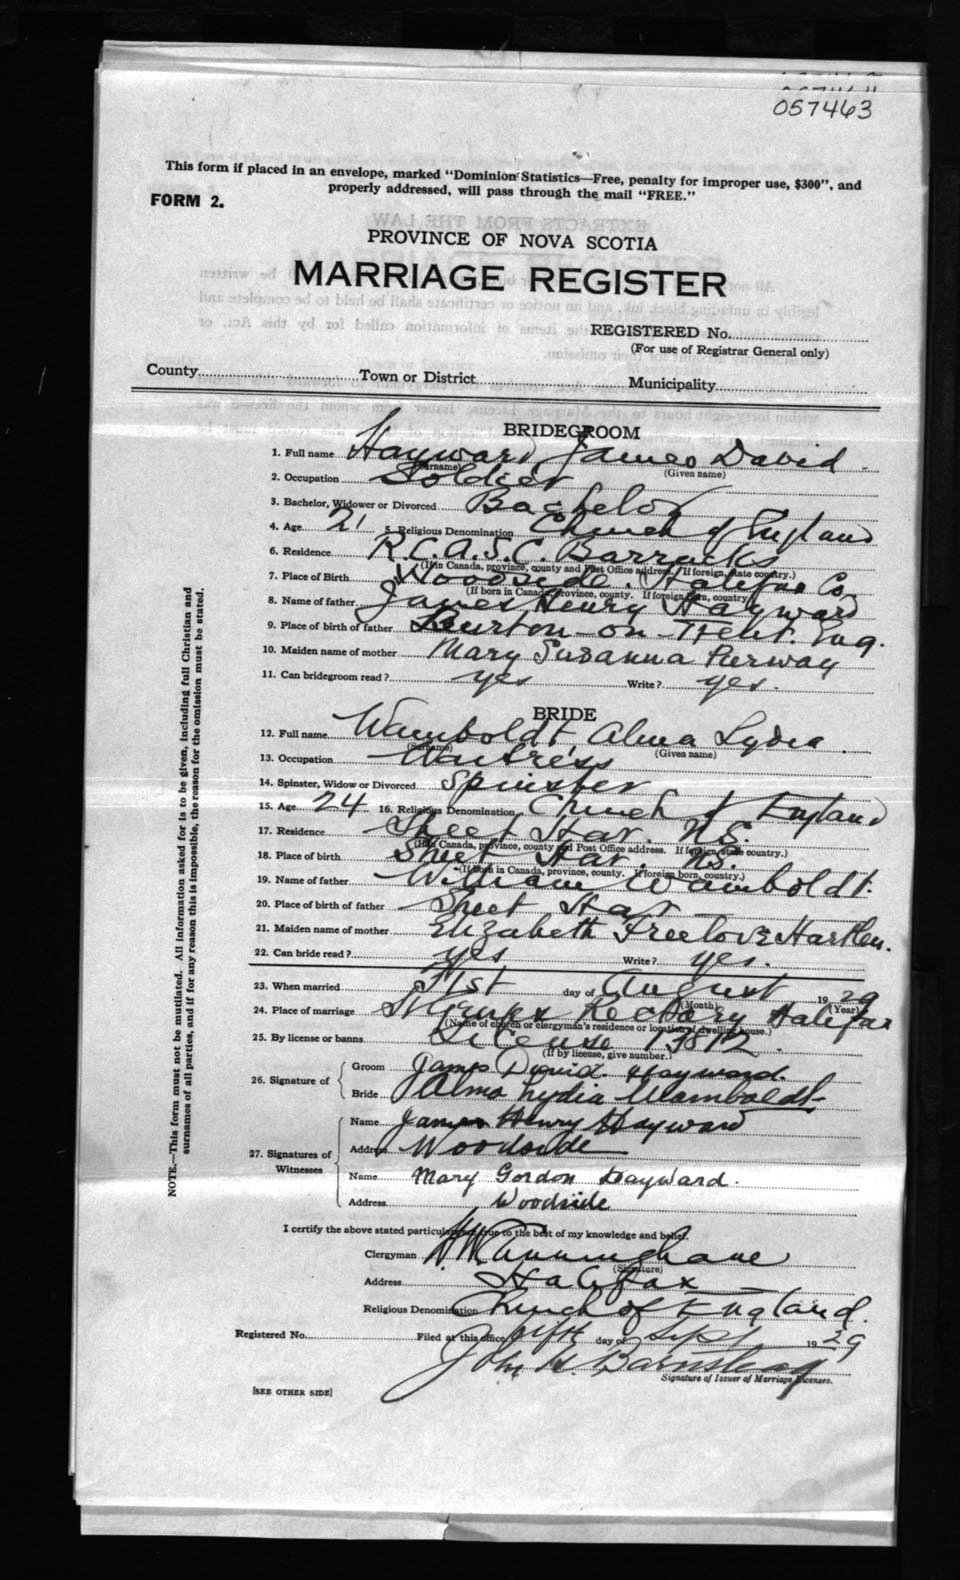 057463
This form if placed in an envelope, marked "Dominion Statistics—Free, penalty for improper use, $300", and
properly addressed, will pass through the mail "FREE."
FORM 2.
PROVINCE OF NOVA SCOTIA
MARRIAGE REGISTER
REGISTERED No.
(For use of Registrar General only)
County Town or District Municipality
BRIDEGROOM
1. Full name Hayward James David
(Surname) (Given name)
2. Occupation Soldier
3. Bachelor, Widower or Divorced Bachelor
4. Age 21 5. Religious Denomination Church of England
6. Residence R.C.A.S.C. Barracks
(If in Canada, province, county and Post Office address. If foreign, state country.)
7. Place of Birth Woodside. Halifax Co.
(If born in Canada, province, county. If foreign born, country.)
8. Name of father James Henry Hayward
9. Place of birth of father Burton-on-Trent. Eng.
10. Maiden name of mother Mary Susanna Purway
11. Can bridegroom read? yes Write? yes.
BRIDE
12. Full name Wamboldt Alma Lydia.
(Surname) (Given name)
13. Occupation Waitress
14. Spinster, Widow or Divorced Spinster
15. Age 24 16. Religious Denomination Church of England
17. Residence Sheet Har. N.S.
(If in Canada, province, county and Post Office address. If foreign, state country.)
18. Place of birth Sheet Har. N.S.
(If born in Canada, province, county. If foreign born, country.)
19. Name of father William Wamboldt.
20. Place of birth of father Sheet Har
21. Maiden name of mother Elizabeth Freelove Hartlen.
22. Can bride read? yes Write? yes.
23. When married 31st day of August 1929
(Month) (Year)
24. Place of marriage Rectory Halifax
(Name of church or clergyman's residence or location of dwelling house.)
25. By license or banns License
(If by license, give number.)
26. Signature of Groom James David Hayward.
Bride Alma Lydia Wamboldt
27. Signatures of Witnesses
Name James Henry Hayward
Address Woodside
Name Mary Gordon Hayward.
Address Woodside
I certify the above stated particulars are true to the best of my knowledge and belief.
Clergyman Cunningham
(Signature)
Address Halifax
Religious Denomination Church of England.
Registered No. Filed at this office fifth day of Sept 1929
John H. Barnstead
Signature of Issuer of Marriage Licenses.
[SEE OTHER SIDE]
NOTE.—This form must not be mutilated. All information asked for is to be given, including full Christian and
surnames of all parties, and if for any reason this is impossible, the reason for the omission must be stated.